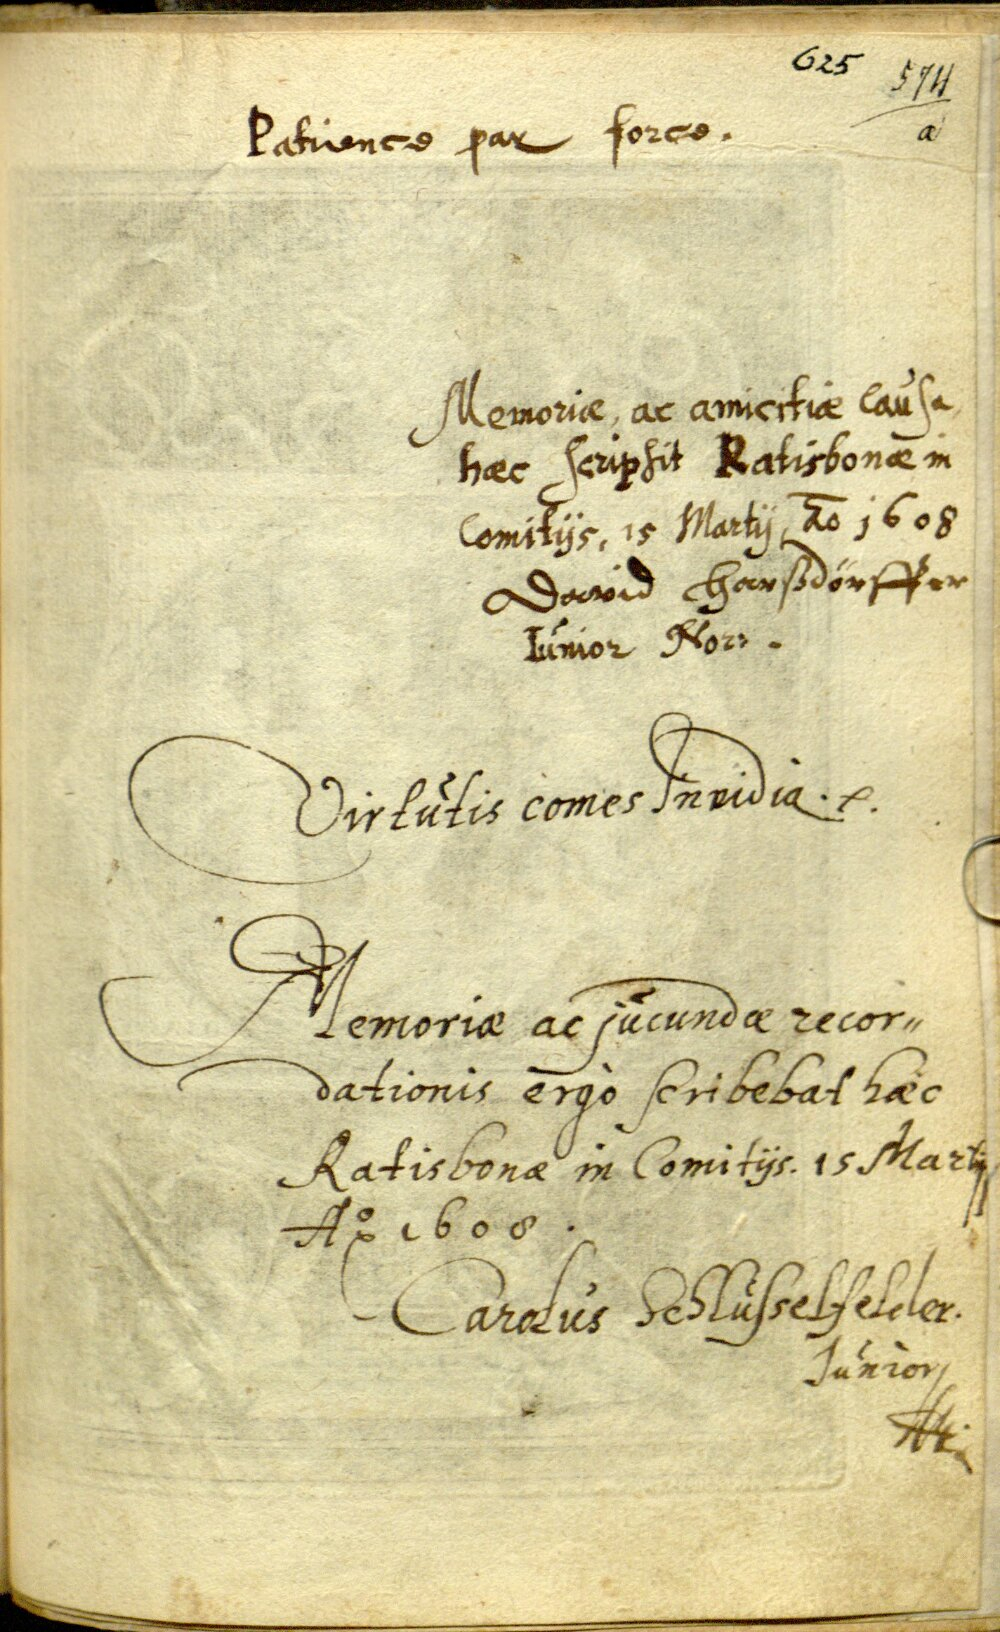 625 574
a
Patience par force.
Memoriæ, ac amicitiæ causa,
hæc scripsit Ratisbonæ in
Comitijs, 15 Martij, Ao 1608
David Harsdörffer
Iunior Nor.
Virtutis comes Invidia.
Memoriæ ac jucundæ recor„
dationis ergò scribebat hæc
Ratisbonæ in Comitijs. 15 Martij
Ao 1608.
Carolus Schlüsselfelder.
Iunior